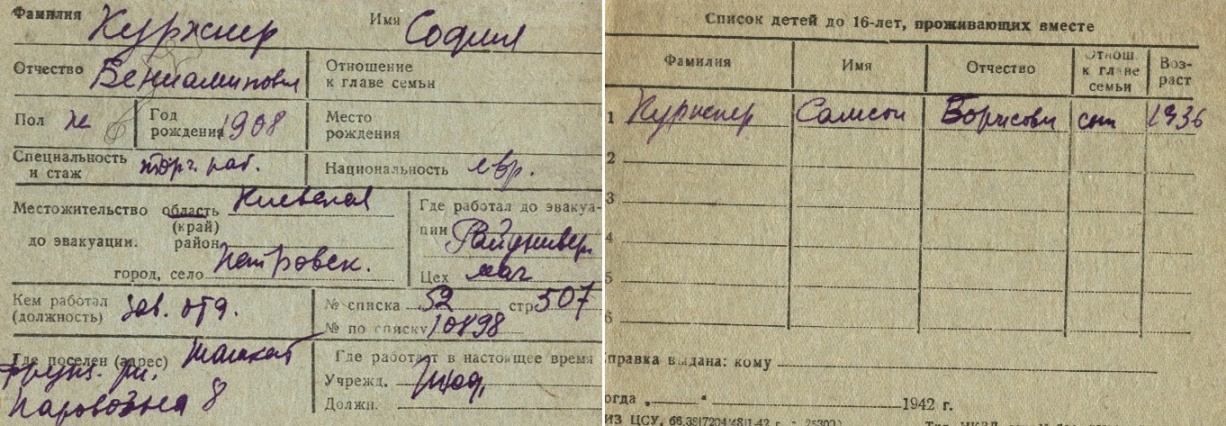 Фамилия Куржнер Имя София
Отчество Вениаминовн Отношение к главе семьи
Пол ж Год рождения 1908 Место рождения
Специальность и стаж торг. раб. Национальность евр.
Местожительство до эвакуации. область (край) Киевская
район
город, село Петровск.
Где работал до эвакуации Райунивер.
Цех маг
Кем работал (должность) Зав. отд.
№ списка 52 стр 507
№ по списку 10898
Где поселен (адрес) Ташкент
Фрунз. рн.
Паровозная 8
Где работает в настоящее время
Учрежд.
Должн.
Список детей до 16-лет, проживающих вместе
Фамилия Имя Отчество Отнош. к главе семьи Возраст
1 Куржнер Самсон Борисови сын 1936
2
3
4
5
6
правка выдана: кому
огда „ “ 1942 г.